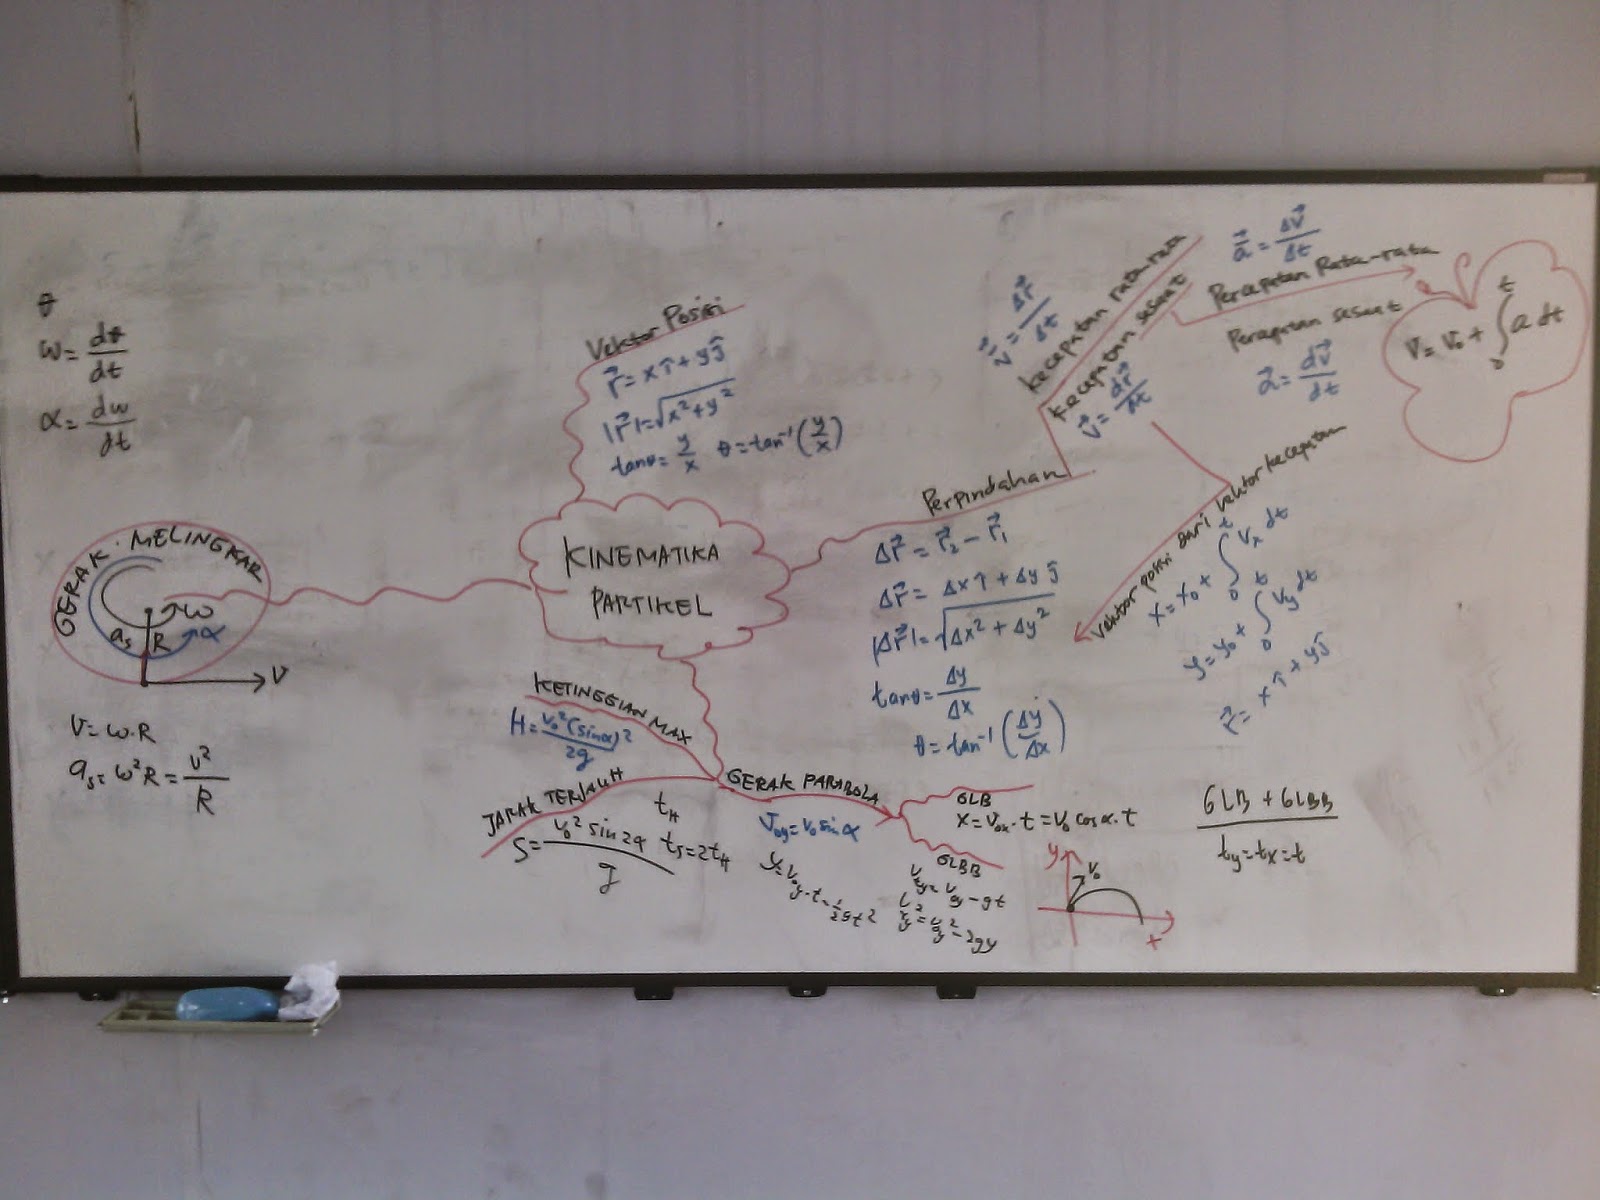 θ
ω = dθ/dt
α = dω/dt
GERAK MELINGKAR
ω
as R α
V
V = ω.R
as = ω²R = v²/R
Vektor Posisi
r⃗ = x î + y ĵ
|r⃗| = √x² + y²
tanθ = y/x θ = tan⁻¹(y/x)
KINEMATIKA
PARTIKEL
Perpindahan
Δr⃗ = r⃗₂ − r⃗₁
Δr⃗ = Δx î + Δy ĵ
|Δr⃗| = √Δx² + Δy²
tanθ = Δy/Δx
θ = tan⁻¹(Δy/Δx)
v⃗ = Δr⃗/Δt
kecepatan rata rata
kecepatan sesaat
v⃗ = dr⃗/dt
a⃗ = Δv⃗/Δt
Percepatan Rata-rata
Percepatan sesaat
a⃗ = dv⃗/dt
V = V₀ + ∫₀ᵗ a dt
Vektor posisi dari vektor kecepatan
x = x₀ + ∫₀ᵗ Vx dt
y = y₀ + ∫₀ᵗ Vy dt
r⃗ = x î + y ĵ
KETINGGIAN MAX
H = v₀²(sinα)²/2g
JARAK TERJAUH
S = v₀² sin 2α/g
tH
ts = 2tH
GERAK PARABOLA
Voy = V₀ sin α
y = Voy.t = ½gt²
GLB
x = Vox.t = V₀ cos α.t
GLBB
Vty = Voy − gt
Vty² = Voy² − 2gy
y
V₀
x
GLB + GLBB
ty = tx = t